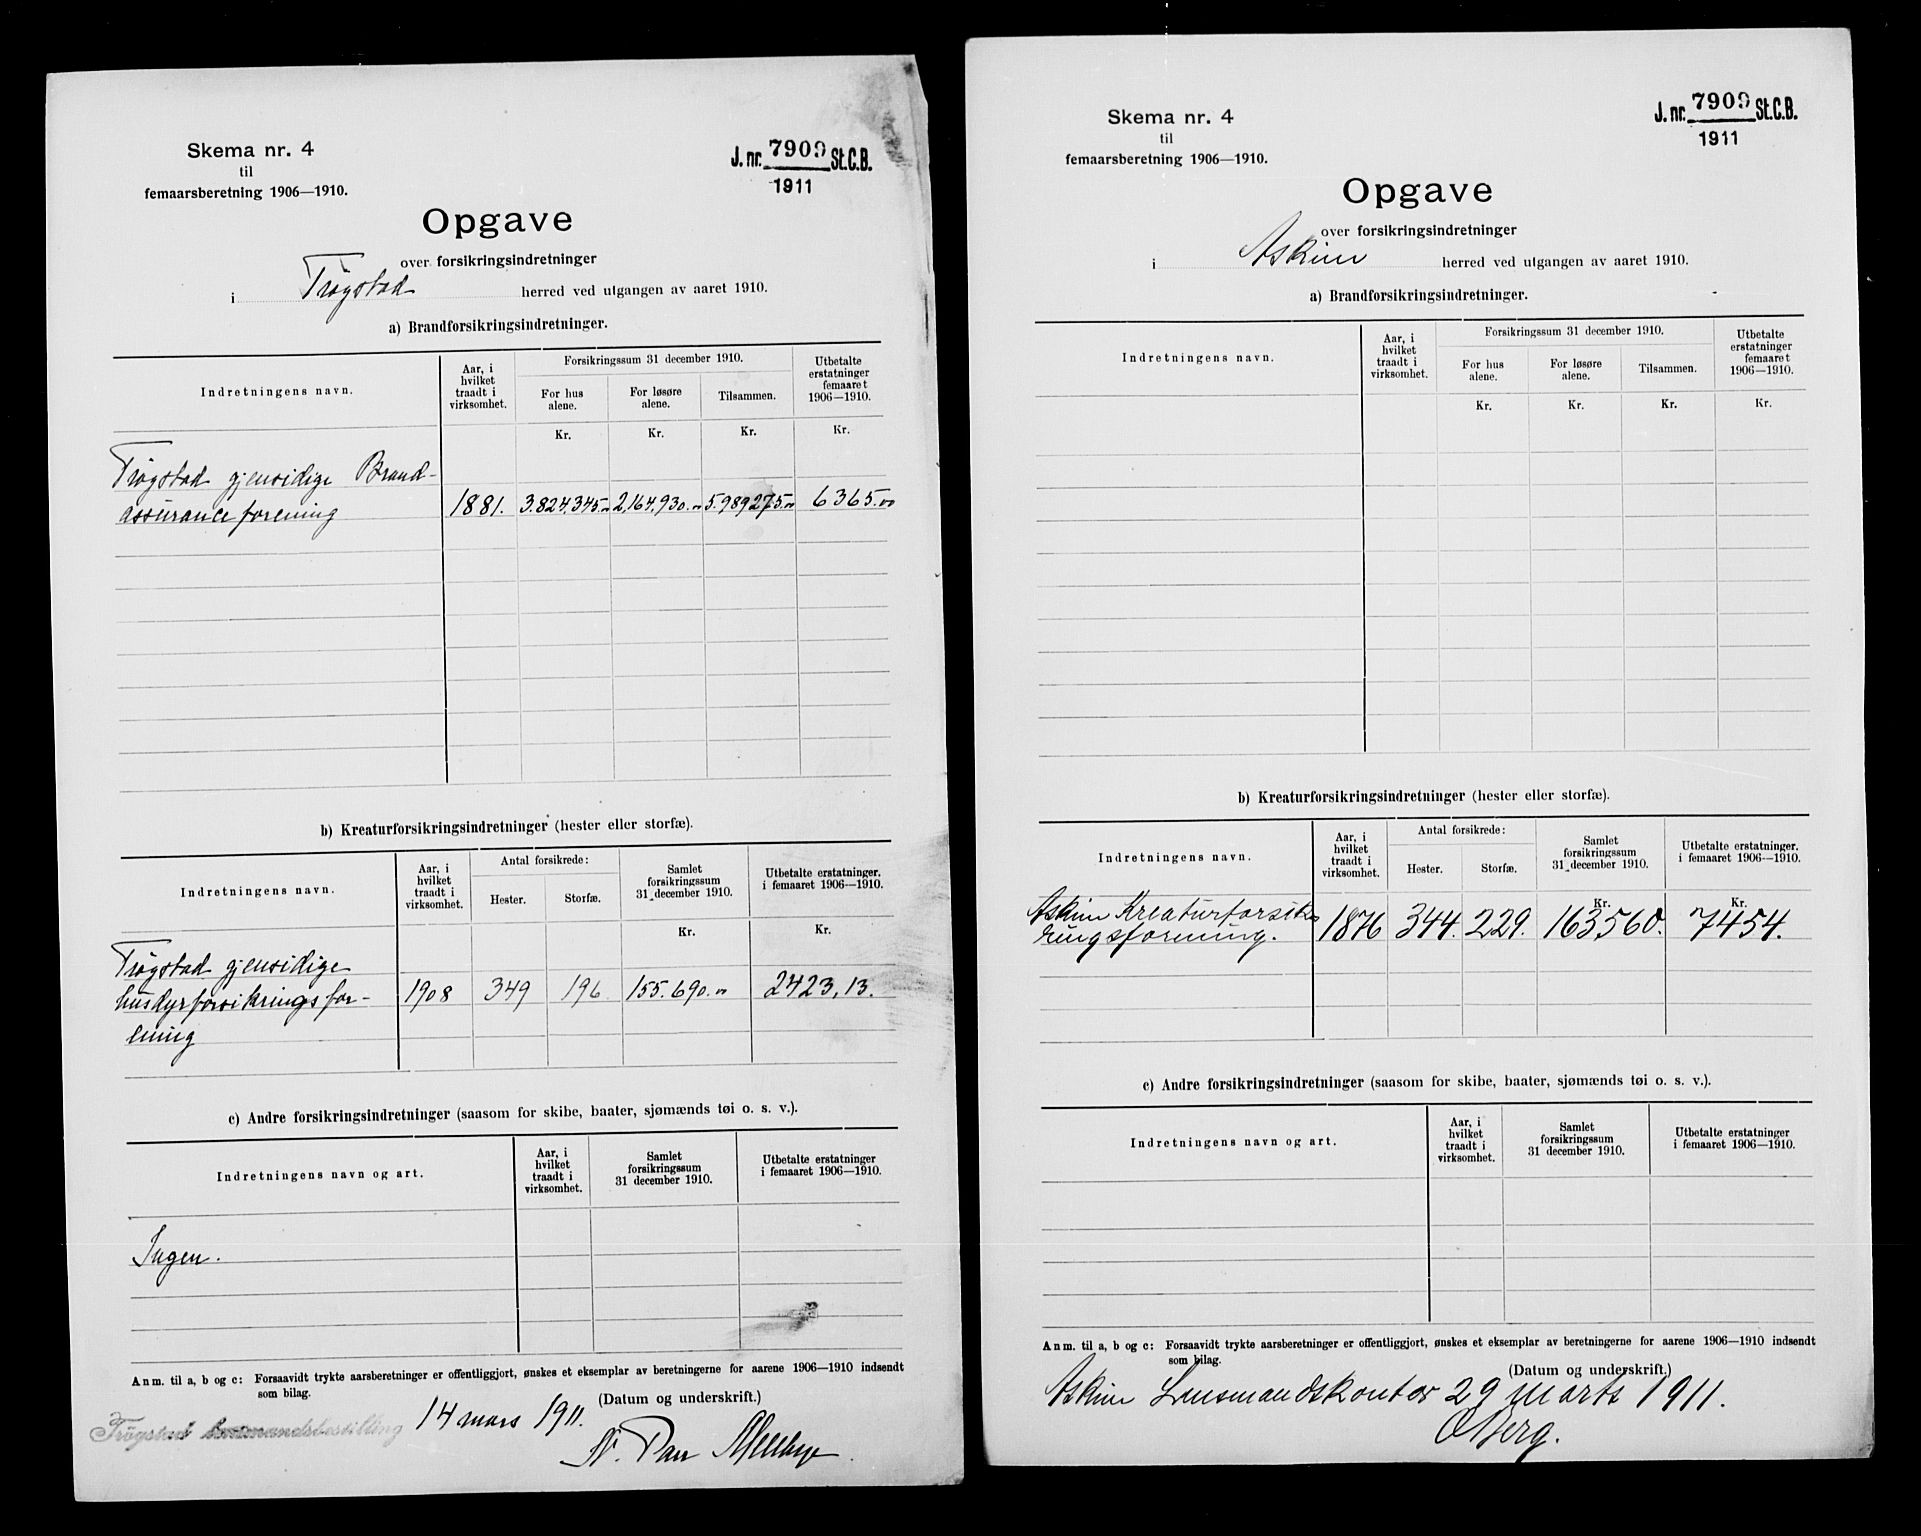 Skema nr. 4
til
femaarsberetning 1906—1910.
J. nr. 7909 St.C.B.
1911
Opgave
over forsikringsindretninger
i Trøgstad herred ved utgangen av aaret 1910.
a) Brandforsikringsindretninger.
Indretningens navn.
Aar, i
hvilket
traadt i
virksomhet.
Forsikringssum 31 december 1910.
For hus
alene.
For løsøre
alene.
Tilsammen.
Utbetalte
erstatninger
femaaret
1906—1910.
Kr. Kr. Kr. Kr.
Trøgstad gjensidige Brand-
assuranceforening 1881. 3.824,345.00 2,164,930.00 5.989275.00 6365.00
b) Kreaturforsikringsindretninger (hester eller storfæ).
Indretningens navn.
Aar, i
hvilket
traadt i
virksomhet.
Antal forsikrede:
Hester. Storfæ.
Samlet
forsikringssum
31 december 1910.
Utbetalte erstatninger.
i femaaret 1906—1910.
Kr. Kr.
Trøgstad gjensidige
husdyrforsikringsfor- 1908 349 196 155.690.00 2423,13.
ening
c) Andre forsikringsindretninger (saasom for skibe, baater, sjømænds tøi o. s. v.).
Indretningens navn og art.
Aar, i
hvilket
traadt i
virksomhet.
Samlet
forsikringssum
31 december 1910.
Utbetalte erstatninger
i femaaret 1906—1910.
Ingen.
Anm. til a, b og c: Forsaavidt trykte aarsberetninger er offentliggjort, ønskes et eksemplar av beretningerne for aarene 1906—1910 indsendt
som bilag.
(Datum og underskrift.)
Trøgstad lensmandsbestilling 14 mars 1911.
N. Mellbye
Skema nr. 4
til
femaarsberetning 1906—1910.
J. nr. 7909 St.C.B.
1911
Opgave
over forsikringsindretninger
i Askim herred ved utgangen av aaret 1910.
a) Brandforsikringsindretninger.
Indretningens navn.
Aar, i
hvilket
traadt i
virksomhet.
Forsikringssum 31 december 1910.
For hus
alene.
For løsøre
alene.
Tilsammen.
Utbetalte
erstatninger
femaaret
1906—1910.
Kr. Kr. Kr. Kr.
b) Kreaturforsikringsindretninger (hester eller storfæ).
Indretningens navn.
Aar, i
hvilket
traadt i
virksomhet.
Antal forsikrede:
Hester. Storfæ.
Samlet
forsikringssum
31 december 1910.
Utbetalte erstatninger.
i femaaret 1906—1910.
Kr. Kr.
Askim Kreaturforsik-
ringsforening. 1876 344. 229. 163,560. 7454.
c) Andre forsikringsindretninger (saasom for skibe, baater, sjømænds tøi o. s. v.).
Indretningens navn og art.
Aar, i
hvilket
traadt i
virksomhet.
Samlet
forsikringssum
31 december 1910.
Utbetalte erstatninger
i femaaret 1906—1910.
Anm. til a, b og c: Forsaavidt trykte aarsberetninger er offentliggjort, ønskes et eksemplar av beretningerne for aarene 1906—1910 indsendt
som bilag.
(Datum og underskrift.)
Askim Lensmandskontor 29 marts 1911.
O Berg.